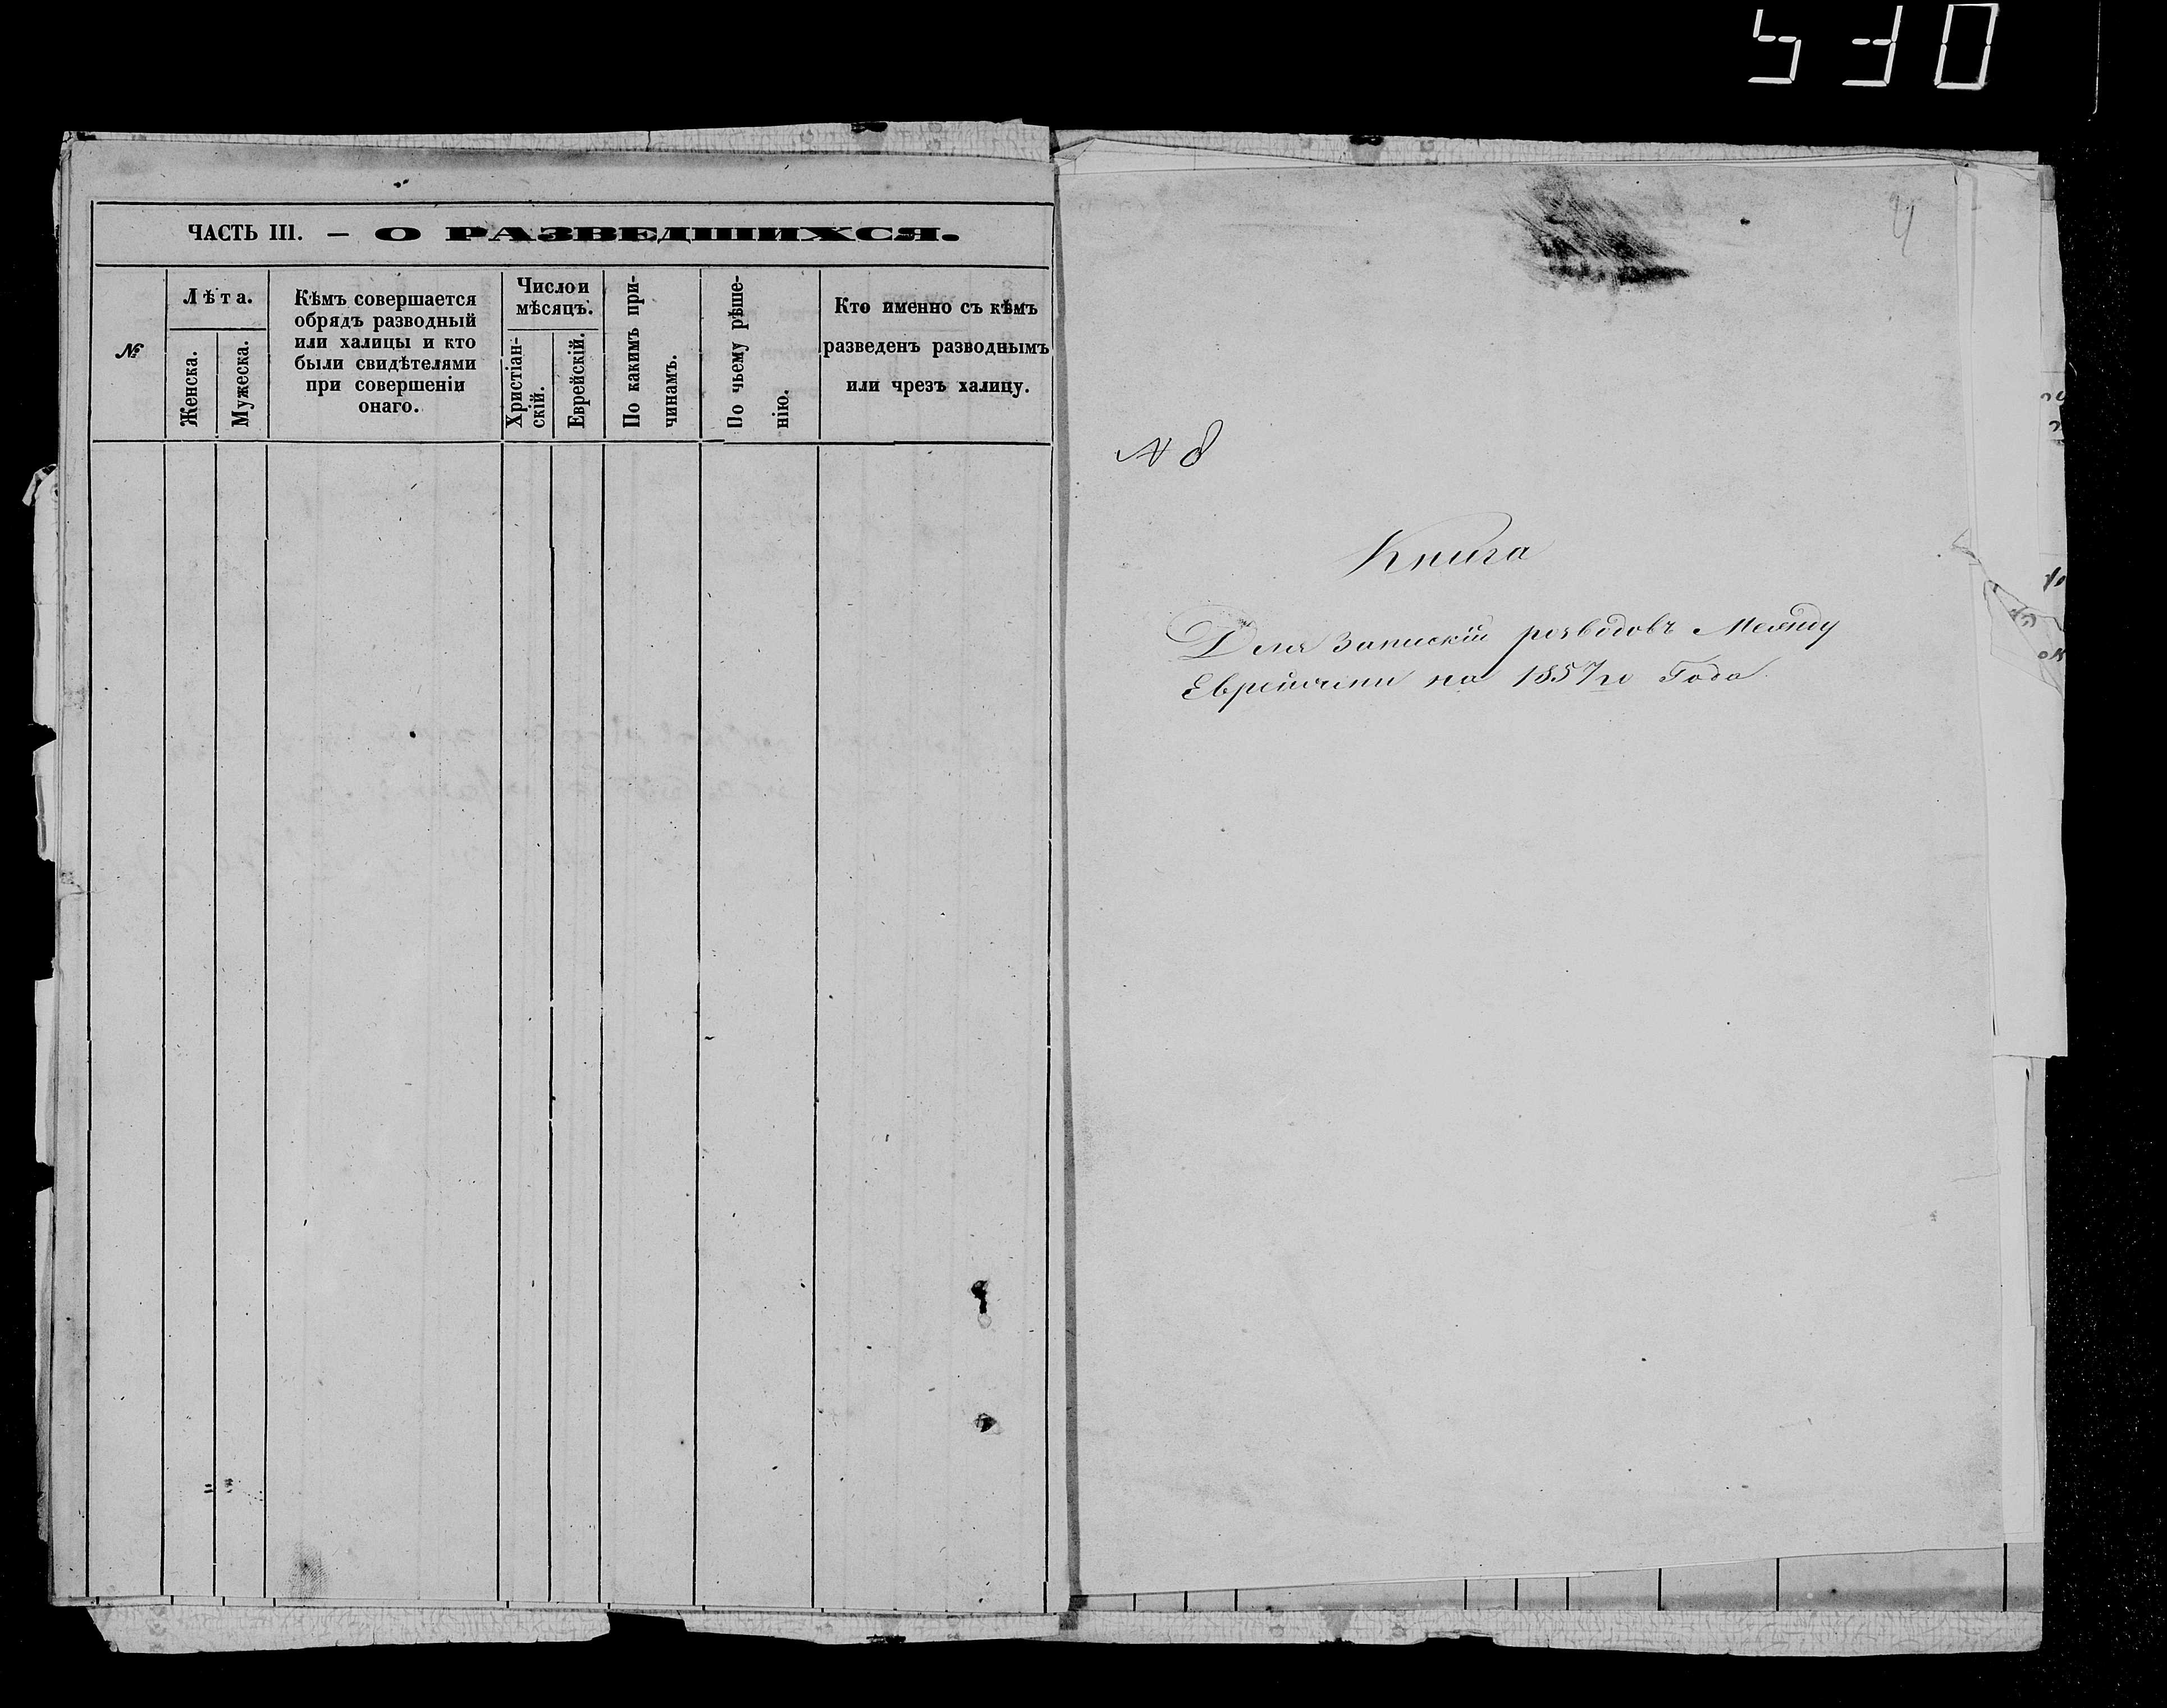 530
ЧАСТЬ III. — О РАЗВЕДШИХСЯ.
№
Лѣта.
Женска.
Мужеска.
Кѣмъ совершается
обрядъ разводный
или халицы и кто
были свидѣтелями
при совершеніи
онаго.
Число и
мѣсяцъ.
Христіан-
скій.
Еврейскій.
По какимъ при-
чинамъ.
По чьему рѣше-
нію.
Кто именно съ кѣмъ
разведенъ разводнымъ
или чрезъ халицу.
4
N 8
Книга
Для Запискій розводовъ Между
Евреями на 1857го Года